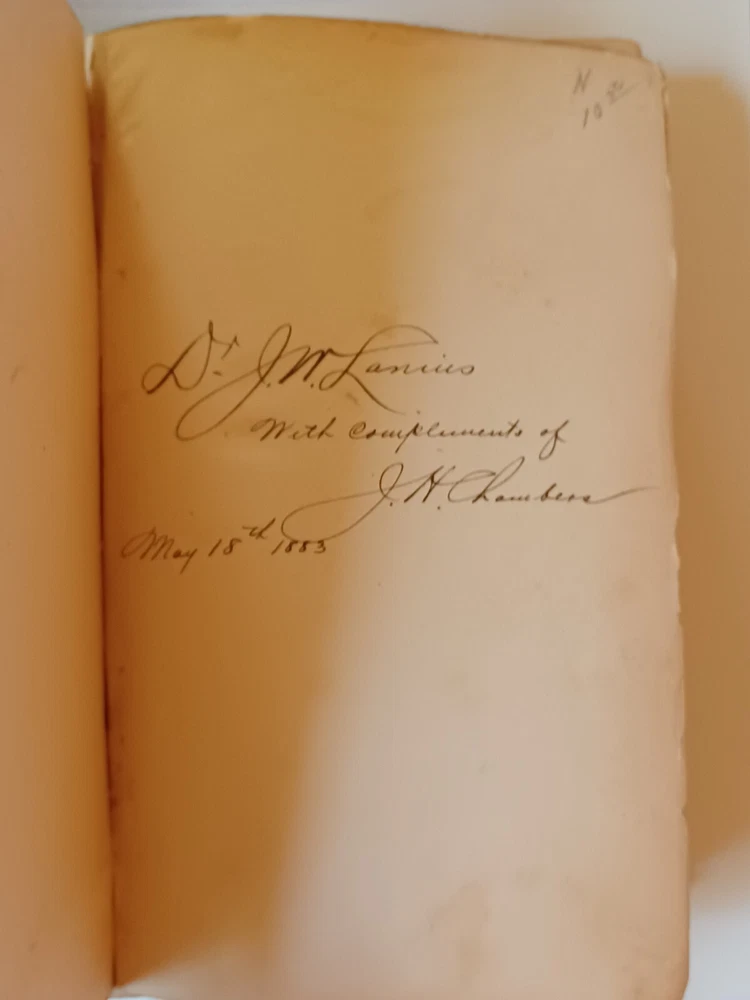 N
10 00
Dr. J. W. Lanius
With complements of
J. H. Chambers
May 18th 1883